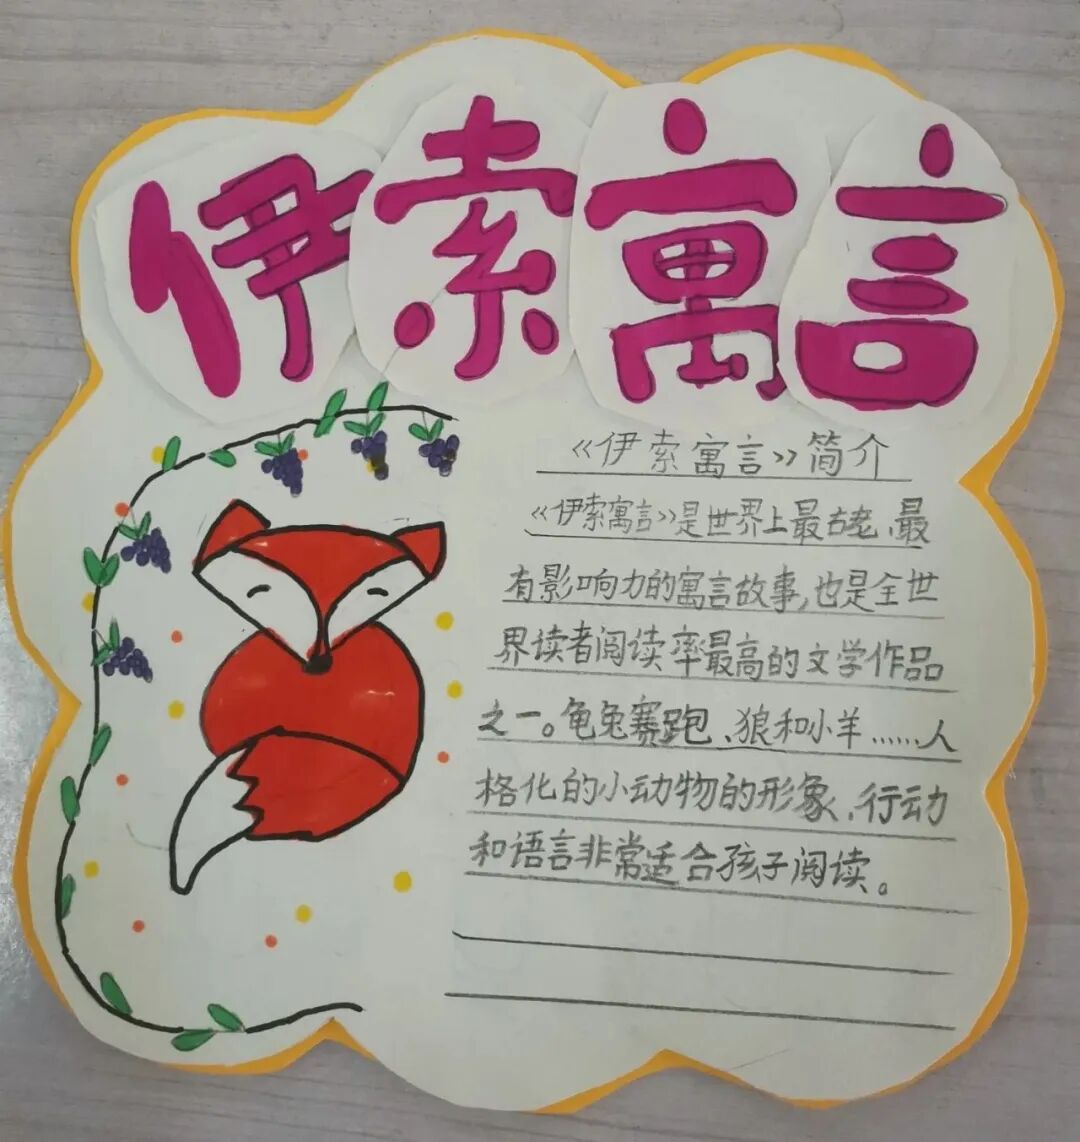 伊索寓言
《伊索寓言》简介
《伊索寓言》是世界上最古老、最
有影响力的寓言故事,也是全世
界读者阅读率最高的文学作品
之一。龟兔赛跑、狼和小羊……人
格化的小动物的形象、行动
和语言非常适合孩子阅读。